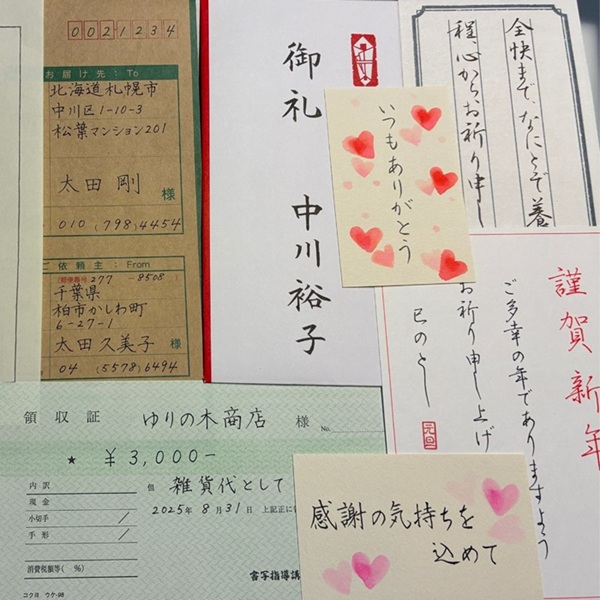 0021234
お届け先：To
北海道札幌市
中川区1-10-3
松葉マンション201
太田 剛 様
010（798）4454
ご依頼主：From
（郵便番号 277-8508）
千葉県
柏市かしわ町
6-27-1
太田久美子 様
04（5578）6494
御礼 中川裕子
いつもありがとう
全快まで、なにとぞ養
程、心からお祈り申し
謹賀新年
ご多幸の年でありますよう
お祈り申し上げ
巳のとし
元旦
領収証 ゆりの木商店 様 No.
★ ¥3,000-
但 雑貨代として
2025年 8月31日 上記正に
内訳
現金
小切手
手形
消費税額等（ %）
コクヨ ウケ-98
書写指導講
感謝の気持ちを
込めて